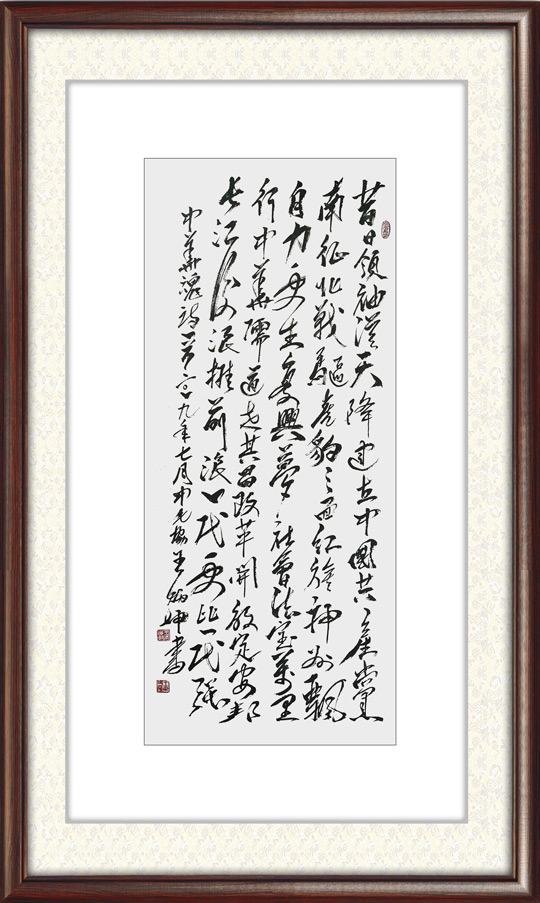 昔日領袖從天降建立中國共產黨
南征北戰驅虎豹三面紅旗神州飄
自力更生復興夢社會法寶萬里
行中華儒道其昌改革開放定安邦
長江後浪推前浪一代更比一代強
中華魂詩一首二〇一九年七月中王坤書